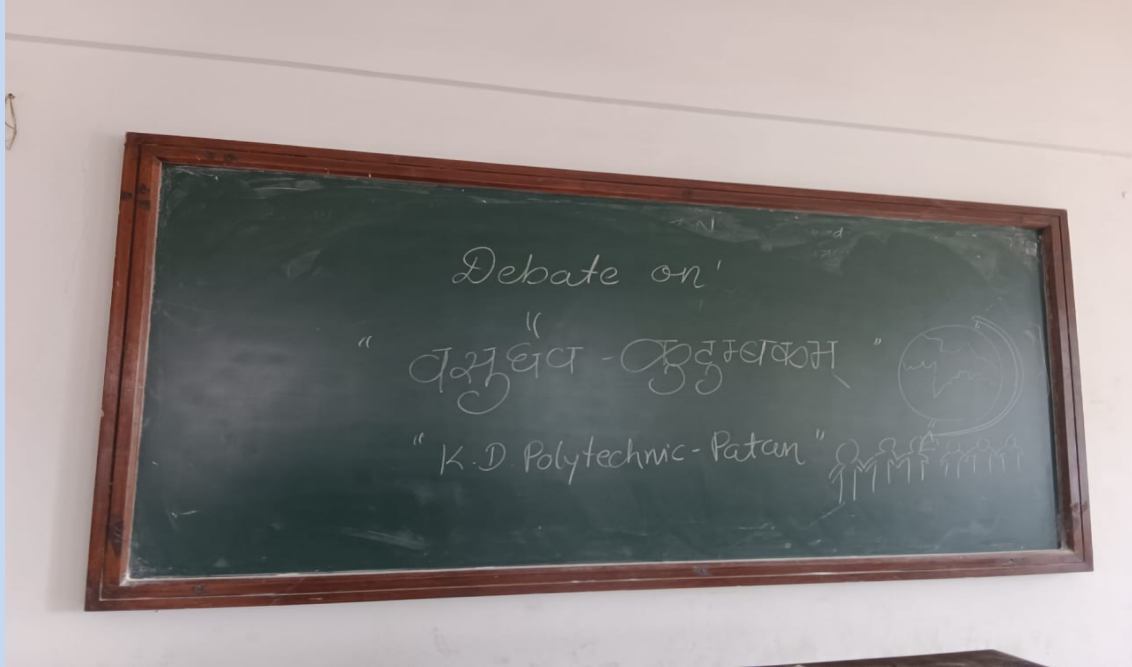 Debate on'
" वसुधैव - कुटुम्बकम् "
" K.D. Polytechnic - Patan "